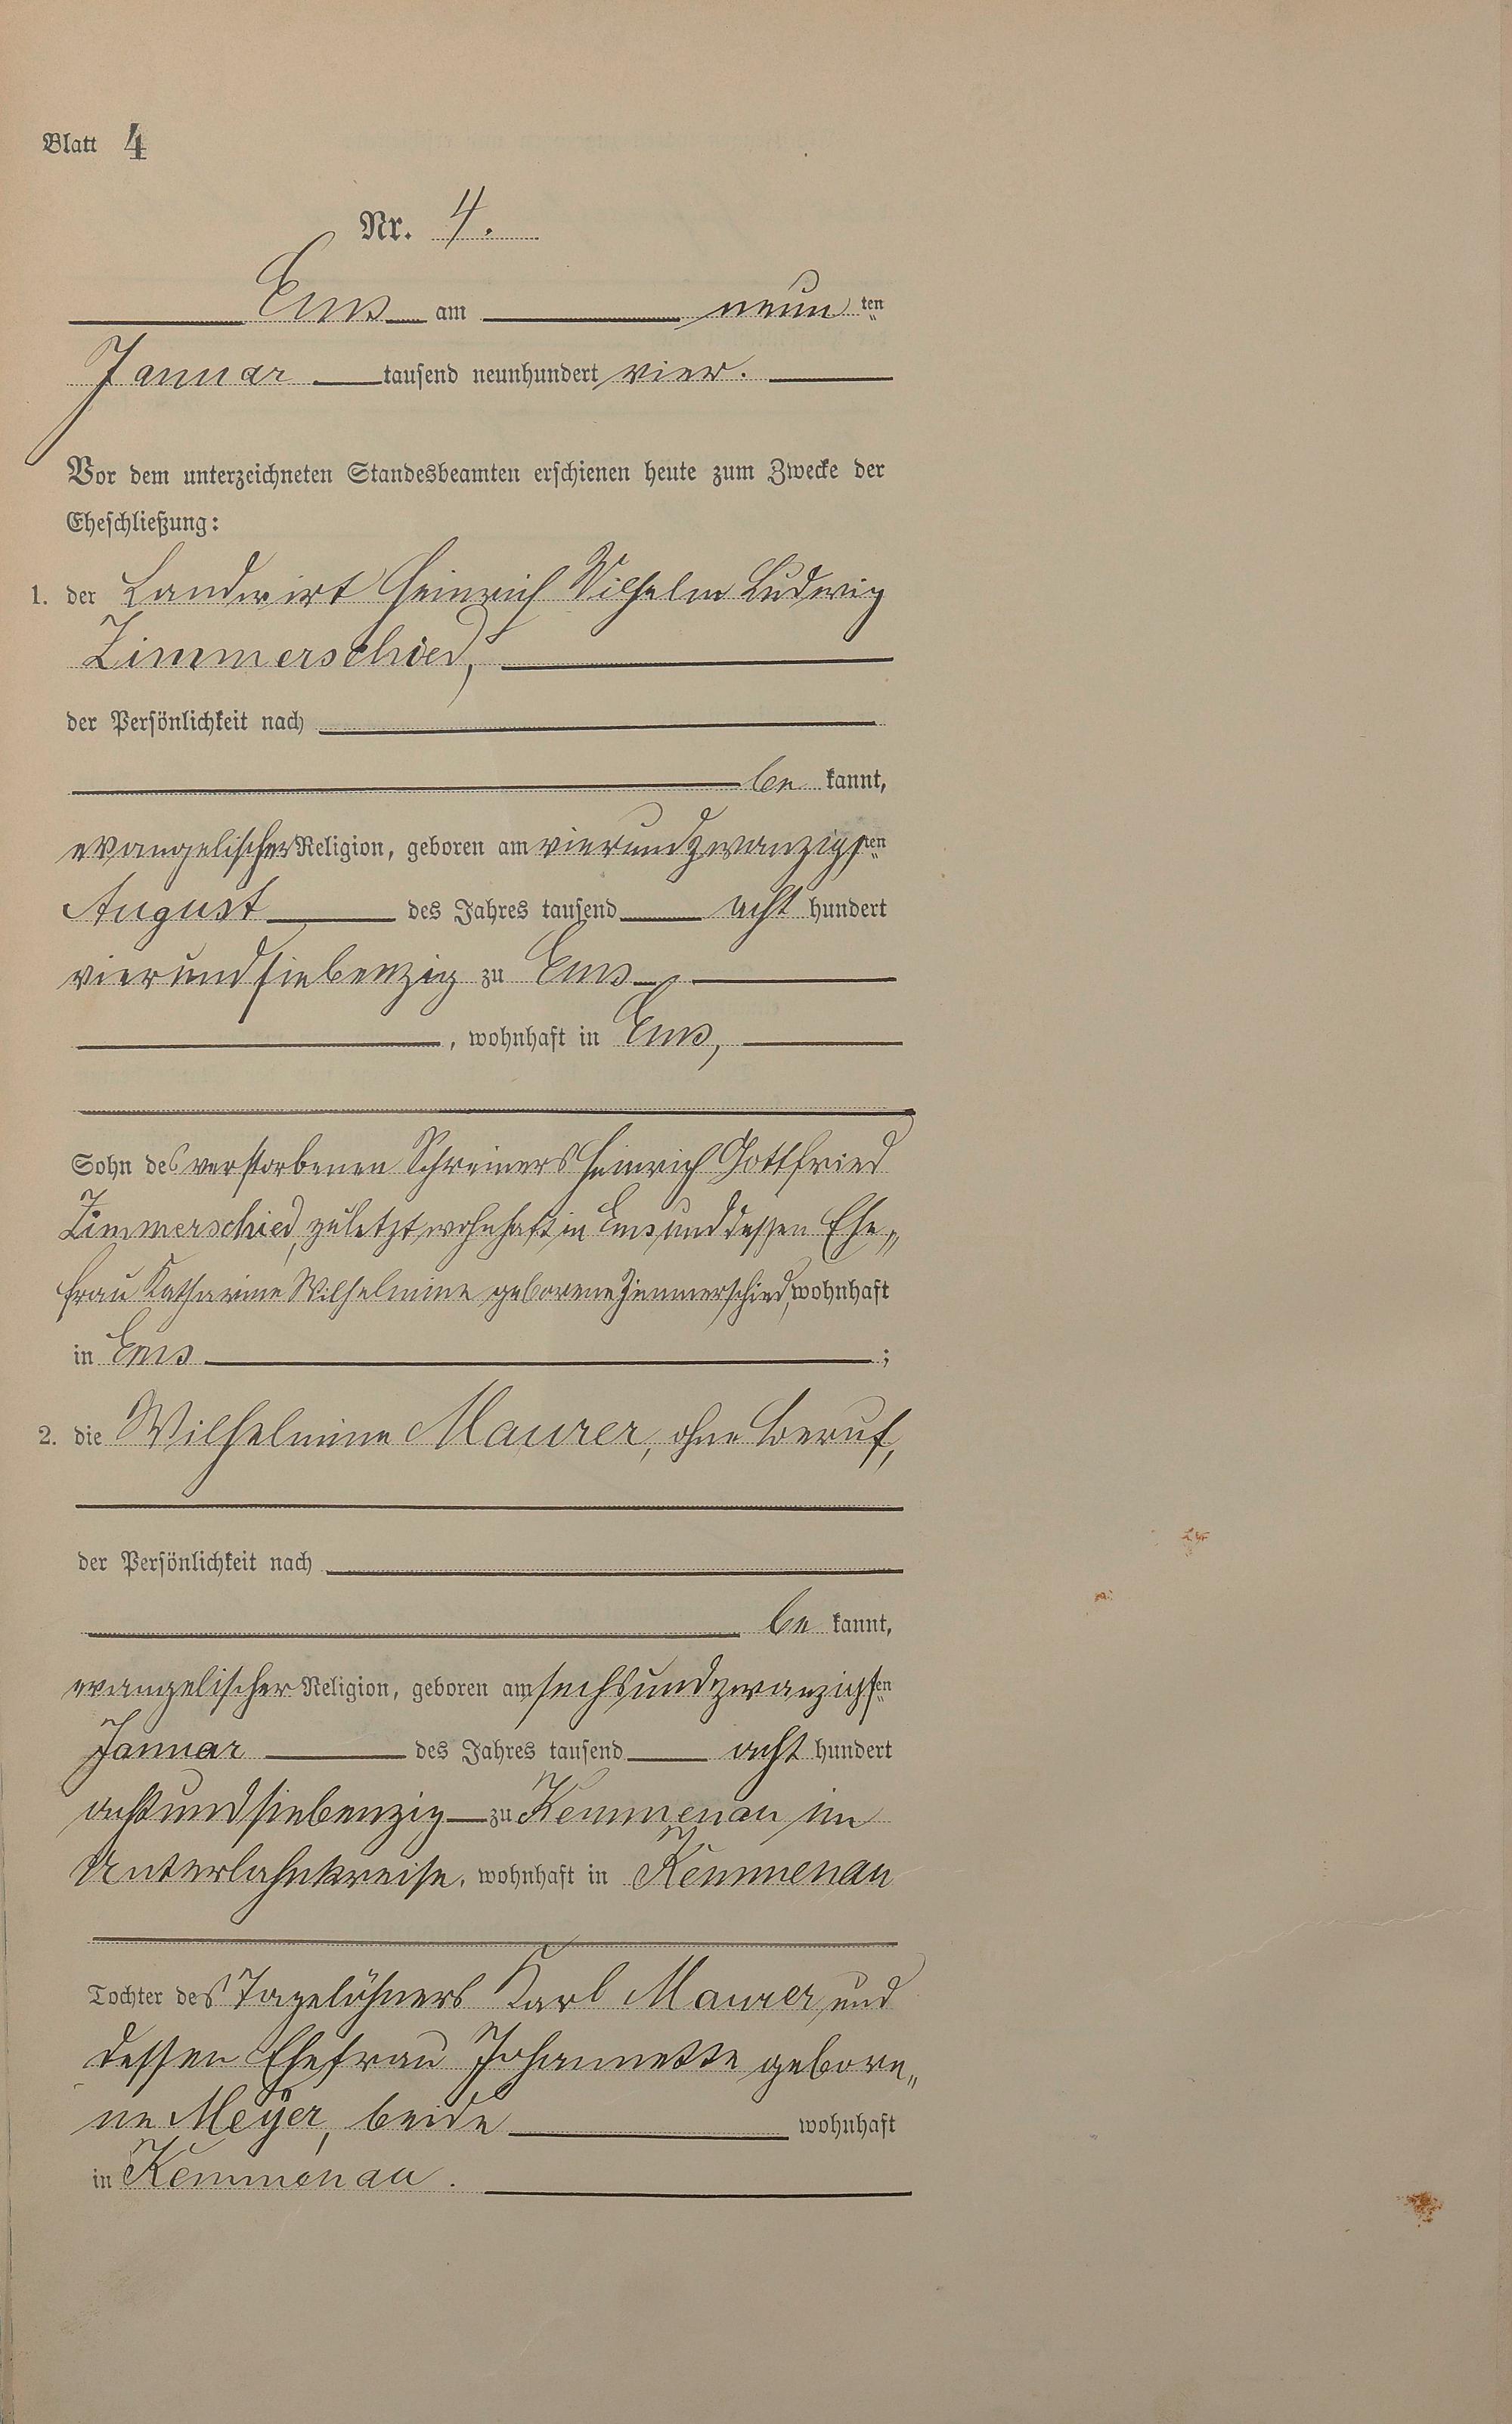 Blatt 4
Nr. 4.
Ems am neun ten
Januar tausend neunhundert vier.
Vor dem unterzeichneten Standesbeamten erschienen heute zum Zwecke der
Eheschließung:
1. der Landwirt Heinrich Wilhelm Ludwig
Zimmerschied,
der Persönlichkeit nach
be kannt,
evangelischer Religion, geboren am vierundzwanzigsten
August des Jahres tausend acht hundert
vierundsiebenzig zu Ems
, wohnhaft in Ems,
Sohn des verstorbenen Schreiners Heinrich Gottfried
Zimmerschied, zuletzt wohnhaft in Ems und dessen Ehe„
frau Katharine Wilhelmine geborene Zimmerschied, wohnhaft
in Ems ;
2. die Wilhelmine Maurer, ohne Beruf,
der Persönlichkeit nach
be kannt,
evangelischer Religion, geboren am sechsundzwanzigsten
Januar des Jahres tausend acht hundert
achtundsiebenzig zu Kemmenau im
Unterlahnkreise, wohnhaft in Kemmenau
Tochter des Tagelöhners Karl Maurer und
dessen Ehefrau Johannette gebore„
ne Meÿer, beide wohnhaft
in Kemmenau.